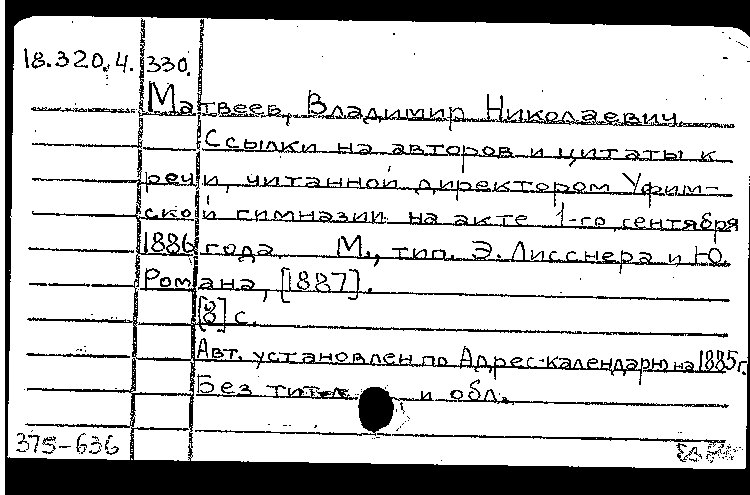 18.320.4. 330.
Матвеев, Владимир Николаевич
Ссылки на авторов и цитаты к
речи, читанной директором Уфим-
ской гимназии на акте 1-го сентября
1886 года М., тип. Э. Лисснера и Ю.
Романа, [1887].
[8] с.
Авт. установлен по Адрес-календарю на 1885 г.
Без и обл.
375-636